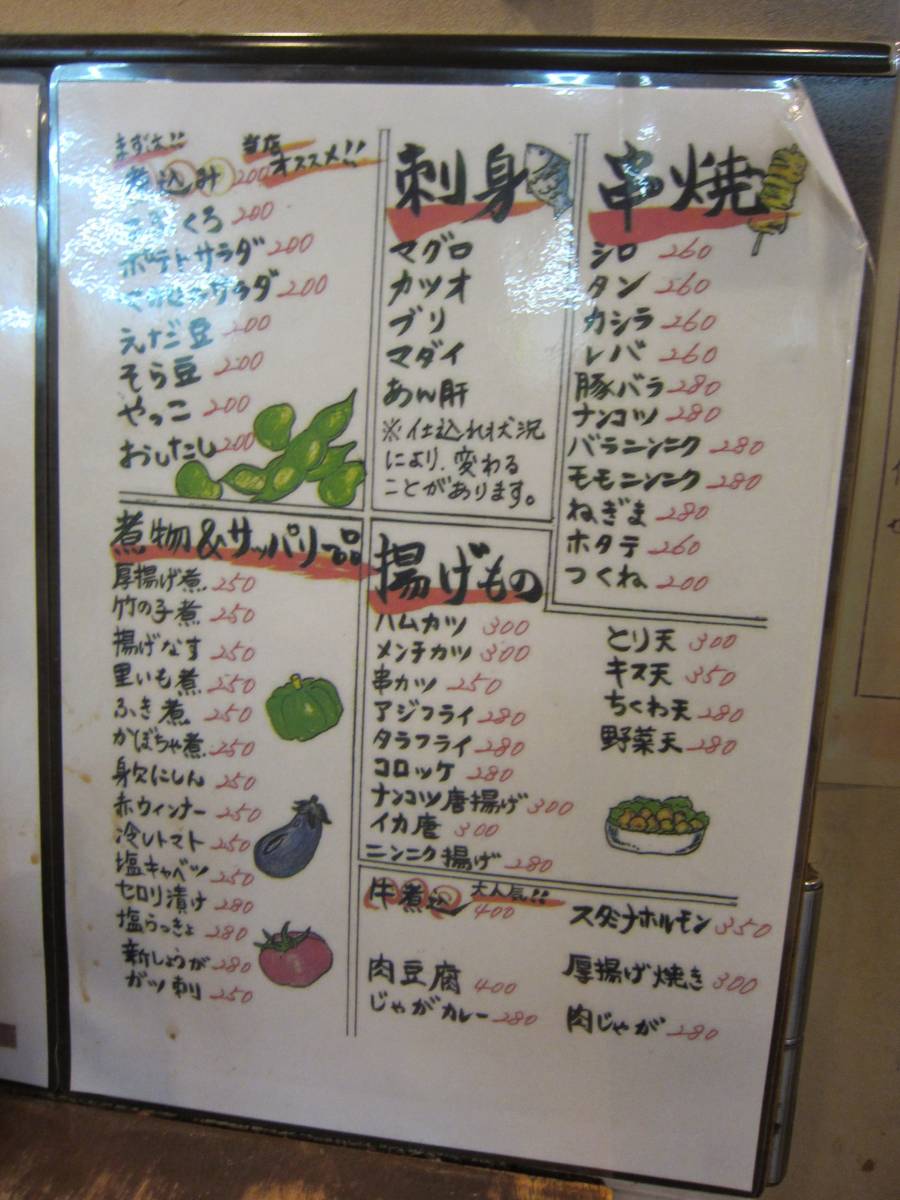 まずは!! 当店オススメ!!
煮込み 200
くろ 200
ポテトサラダ 200
サラダ 200
えだ豆 200
そら豆 200
やっこ 200
おしたし 200
刺身
マグロ
カツオ
ブリ
マダイ
あん肝
※仕込れ状況
により、変わる
ことがあります。
串焼
シロ 260
タン 260
カシラ 260
レバ 260
豚バラ 280
ナンコツ 280
バラニンニク 280
モモニンニク 280
ねぎま 280
ホタテ 260
つくね 200
煮物&サッパリ品
厚揚げ煮 250
竹の子煮 250
揚げなす 250
里いも煮 250
ふき煮 250
かぼちゃ煮 250
身欠にしん 250
赤ウィンナー 250
冷しトマト 250
塩キャベツ 250
セロリ漬け 280
塩らっきょ 280
新しょうが 280
ガツ刺 250
揚げもの
ハムカツ 300
メンチカツ 300
串カツ 250
アジフライ 280
タラフライ 280
コロッケ 280
ナンコツ唐揚げ 300
イカ唐 300
ニンニク揚げ 280
とり天 300
キス天 350
ちくわ天 280
野菜天 280
牛煮込 大人気!! 400
肉豆腐 400
じゃがカレー 280
スタミナホルモン 350
厚揚げ焼き 300
肉じゃが 280